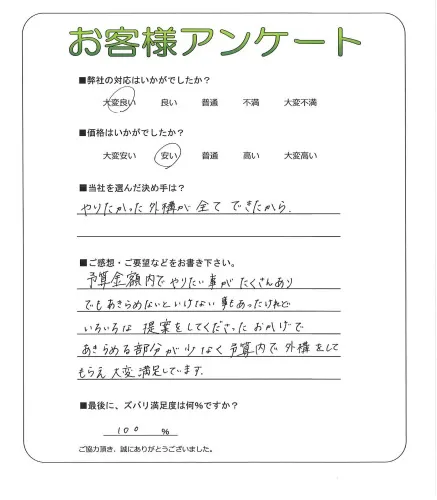 お客様アンケート
■弊社の対応はいかがでしたか？
大変良い 良い 普通 不満 大変不満
■価格はいかがでしたか？
大変安い 安い 普通 高い 大変高い
■当社を選んだ決め手は？
やりたかった外構が全てできたから.
■ご感想・ご要望などをお書き下さい。
予算金額内でやりたい事がたくさんあり
でもあきらめないといけない事もあったけれど
いろいろな提案をしてくださったおかげで
あきらめる部分が少なく予算内で外構をして
もらえ大変満足しています.
■最後に、ズバリ満足度は何%ですか？
100 %
ご協力頂き、誠にありがとうございました。